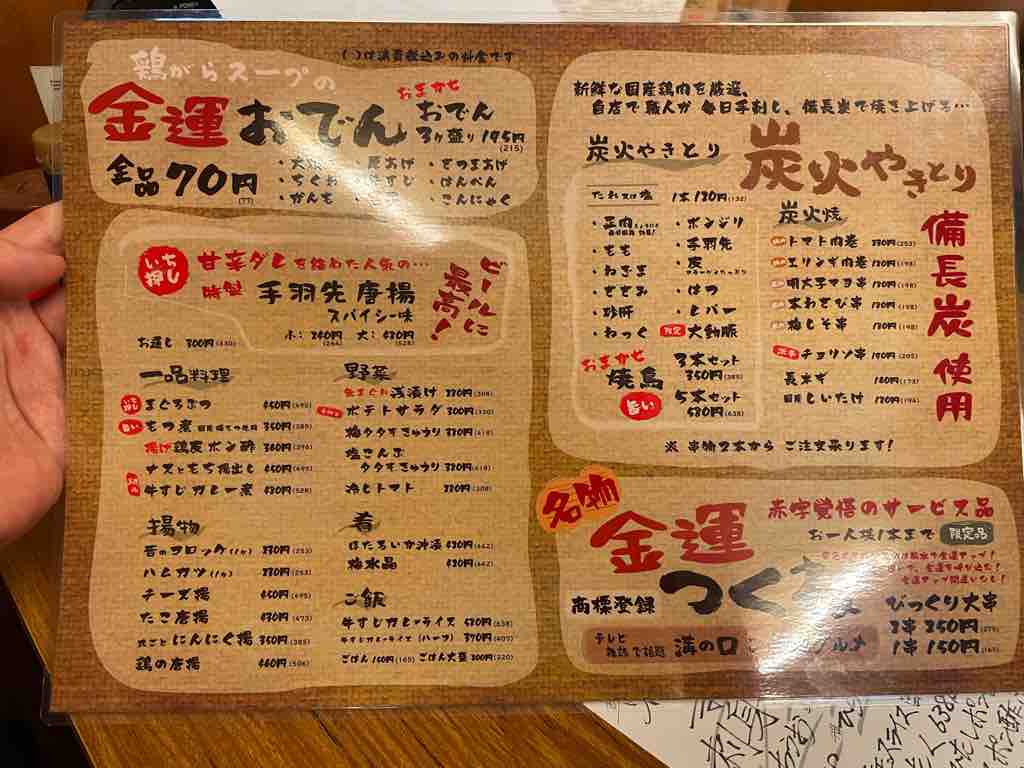 ( )は消費税込みの料金です
鶏がらスープの
金運おでん
おまかせ
おでん
3ヶ盛り 195円
(215)
全品70円
(77)
・さつまあげ
・ちくわ
・牛すじ
・はんぺん
・がんも
・こんにゃく
いち押し
甘辛ダレを絡めた人気の…
特製 手羽先唐揚
スパイシー味
ビールに最高！
お通し 300円(330)
小：240円(264)
大：480円(528)
一品料理
いち押し まぐろぶつ 450円(495)
旨い もつ煮 350円(385)
揚げ鶏皮ポン酢 360円(396)
ナスともち揚出し 450円(495)
牛すじカレー煮 480円(528)
揚物
昔のコロッケ 230円(253)
ハムカツ 230円(253)
チーズ揚 450円(495)
たこ唐揚 430円(473)
丸ごとにんにく揚 350円(385)
鶏の唐揚 460円(506)
野菜
浅漬け 280円(308)
ポテトサラダ 300円(330)
梅タタききゅうり 380円(418)
塩こんぶ
タタききゅうり 380円(418)
冷しトマト 280円(308)
肴
ほたるいか沖漬 420円(462)
梅水晶 420円(462)
ご飯
牛すじカレーライス 580円(638)
牛すじカレーライス(ハーフ) 370円(407)
ごはん 150円(165) ごはん大盛 200円(220)
新鮮な国産鶏肉を厳選、
自店で職人が毎日手刺し、備長炭で焼き上げる…
炭火やきとり
炭火やきとり
たれ又は塩 1本120円(132)
・正肉
・もも
・ねぎま
・ささみ
・砂肝
・ねっく
・ボンジリ
・手羽先
・皮
・はつ
・レバー
限定 大動脈
おまかせ
焼鳥
旨い
3本セット
350円(385)
5本セット
580円(638)
炭火焼
トマト肉巻 230円(253)
エリンギ肉巻 180円(198)
明太子マヨ串 180円(198)
本わさび串 180円(198)
梅しそ串 180円(198)
チョリソ串 190円(205)
長ネギ 160円(173)
しいたけ 180円(194)
備長炭使用
※ 串物2本から ご注文承ります！
名物
金運
つく
赤字覚悟のサービス品
お一人様1本まで 限定品
商標登録
びっくり大串
2串 250円(275)
1串 150円(165)
テレビ
雑誌で話題
溝の口
グルメ